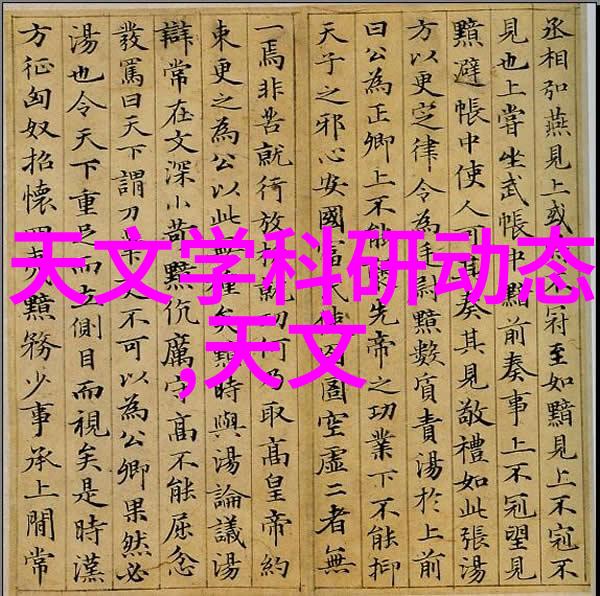 丞相弘燕見上或
不冠至如黯見上不冠不
見也上嘗坐武帳中黯前奏事上不冠望見
黯避帳中使人可其奏其見敬禮如此張湯
方以更定律令為
黯數質責湯於上前
曰公為正卿上不能
先帝之功業下不能抑
天子之邪心安國富民使囹圄空虛二者無
一焉非苦就行放
何乃取高皇帝約
束更之為公以此無種矣黯時與湯論議湯
辯常在文深小苛黯伉厲守高不能屈忿
發罵曰天下謂刀
不可以為公卿果然必
湯也令天下重足而立側目而視矣是時漢
方征匈奴招懷四夷黯務少事承上間常
天文学科研动态
,天文